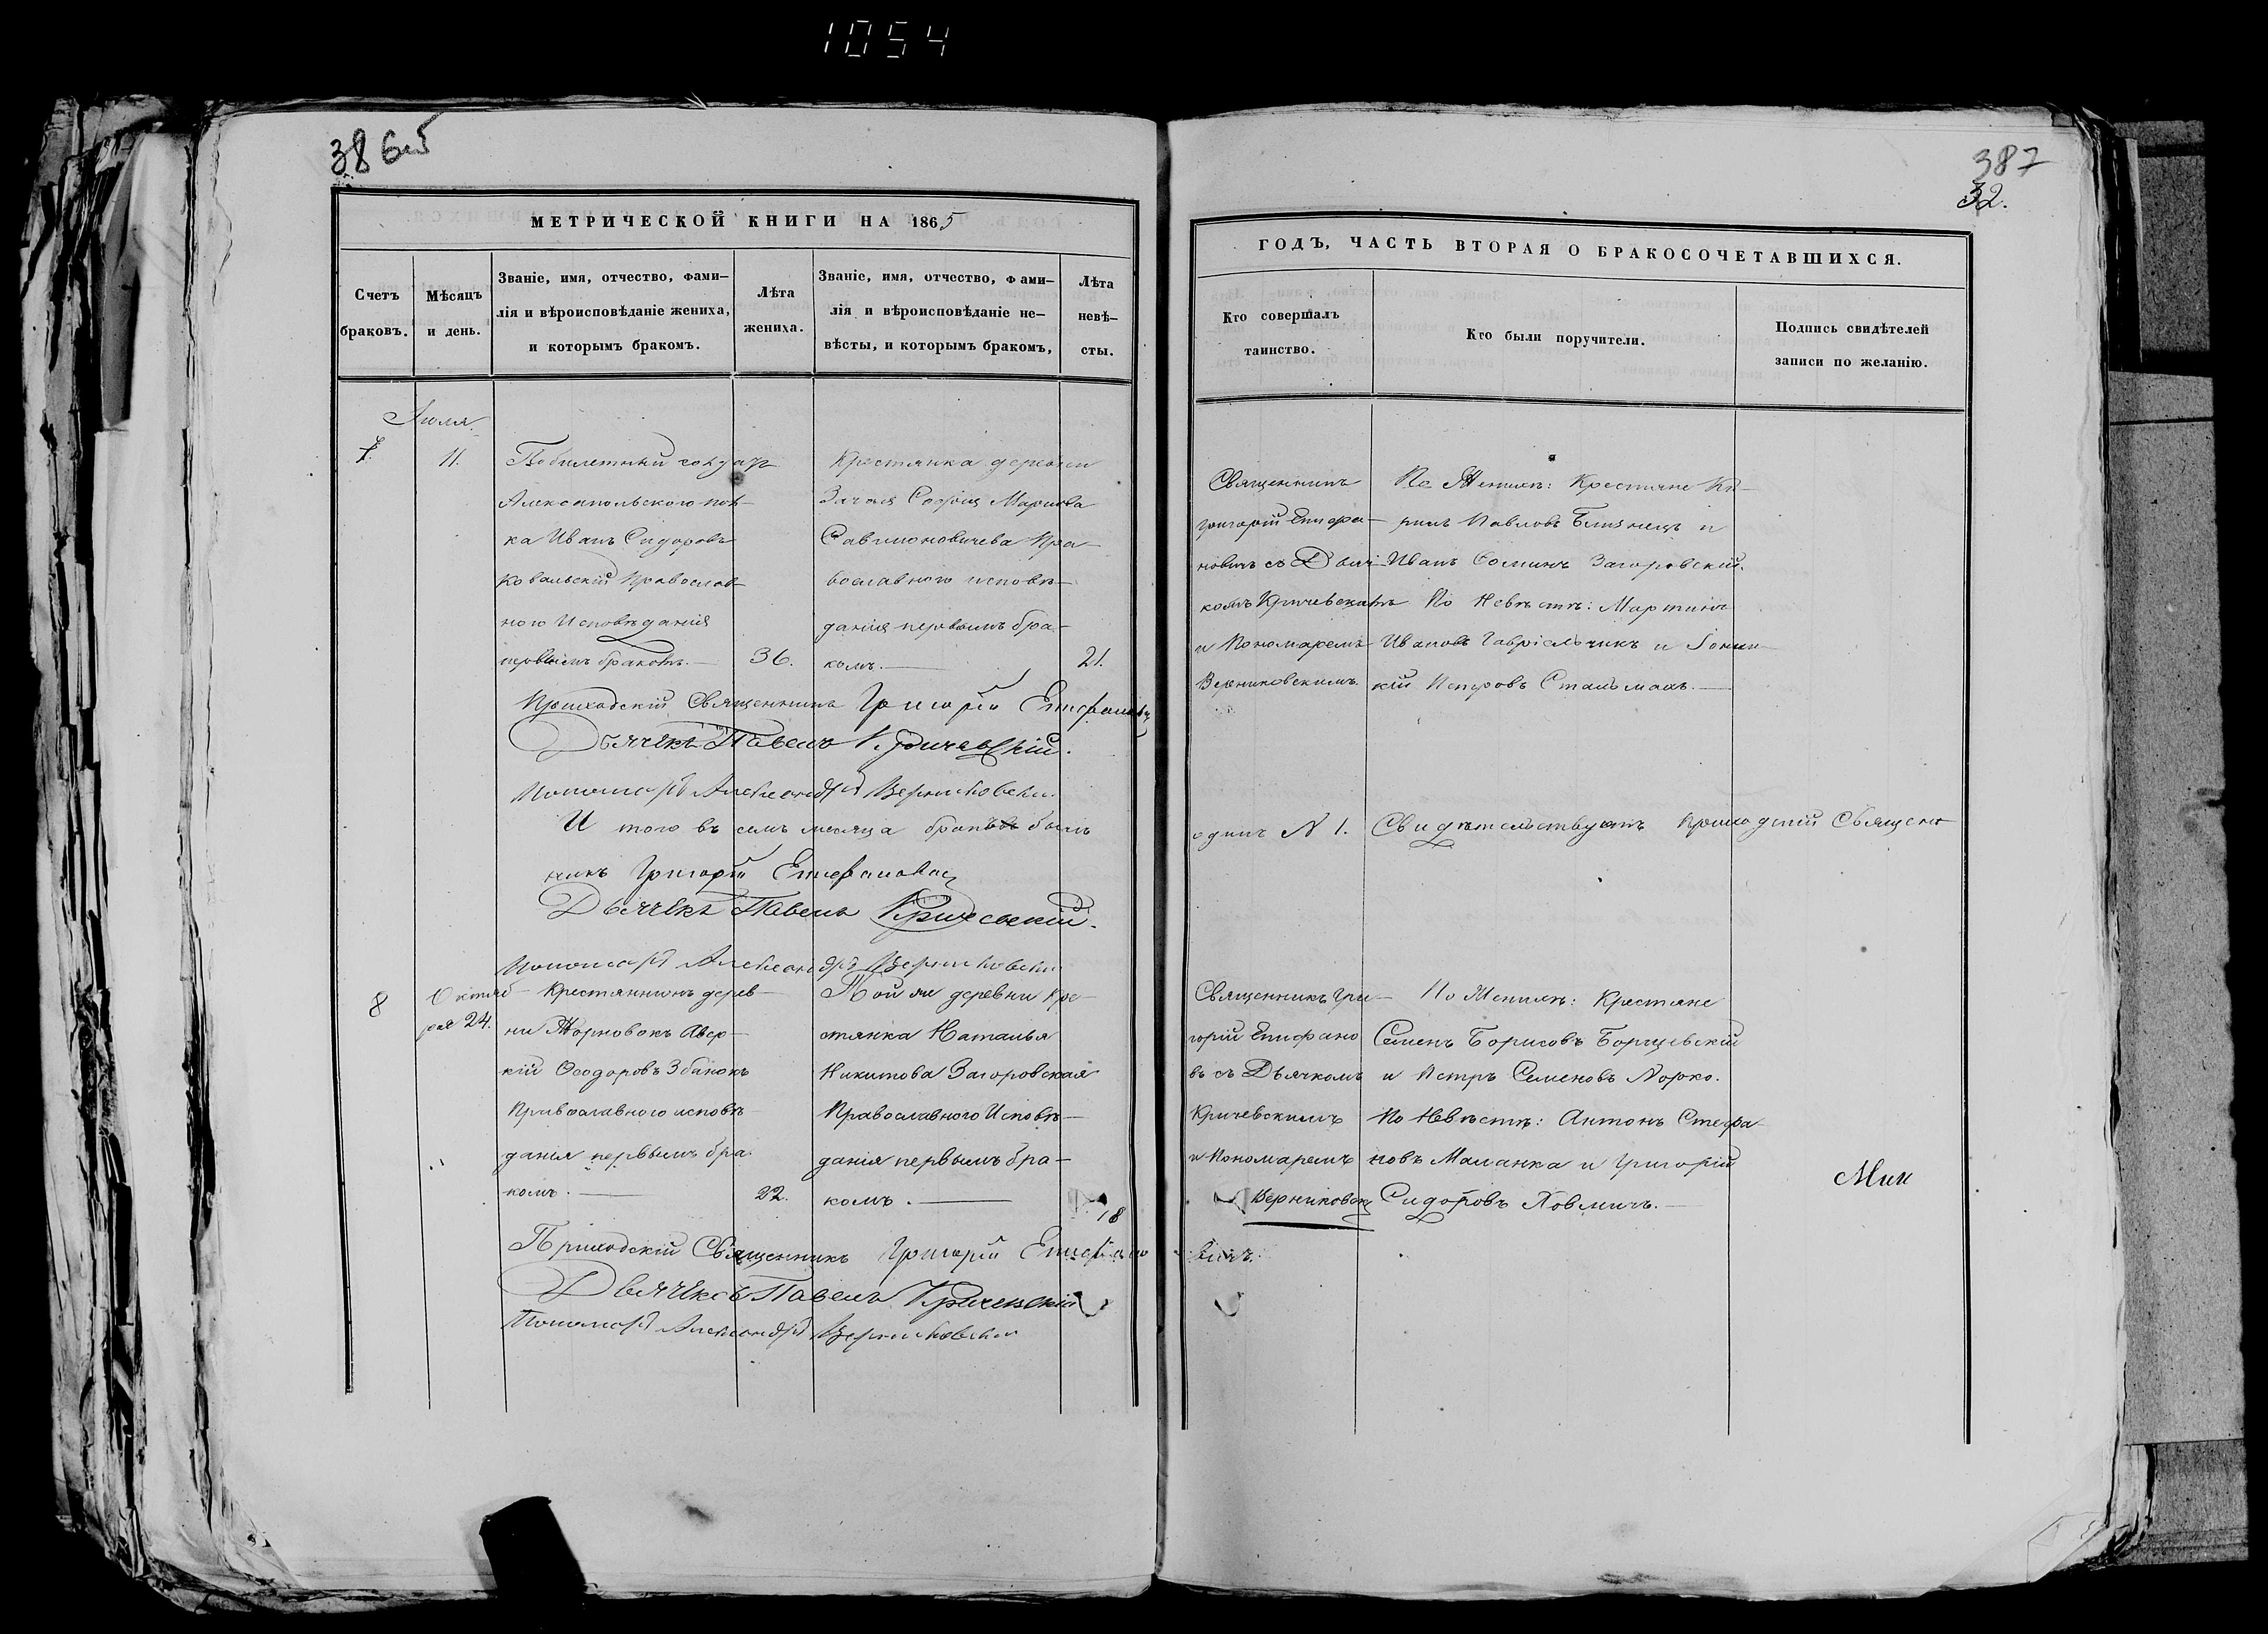 1054
386
387
32.
МЕТРИЧЕСКОЙ КНИГИ НА 1865
Счетъ браковъ.
Мѣсяцъ и день.
Званіе, имя, отчество, фами-
лія и вѣроисповѣданіе жениха,
и которымъ бракомъ.
Лѣта жениха.
Званіе, имя, отчество, фами-
лія и вѣроисповѣданіе не-
вѣсты, и которымъ бракомъ,
Лѣта невѣ-
сты.
Іюля.
7. 11.
Безбилетный солдатъ
полка Иванъ Сидоровъ
Ковальскій Православ-
ного Исповѣданія
первымъ бракомъ. 36.
Крестянка деревни
Маркова
Пра-
вославного исповѣ-
данія первымъ бра-
комъ. 21.
Приходскій Священникъ Григорій Епифановичъ
Дьячекъ Павелъ Кричевскій.
Пономарь Александръ Верниковскій
И того въ семъ месяца бракъ былъ
никъ Григорій Епифановичъ
Дьячекъ Павелъ Кричевскій.
Пономарь Александръ Верниковскій
8 Октяб-
ря 24.
Крестянинъ дерев-
ни Жорновокъ Авер-
кій Ѳеодоровъ Збанокъ
Православного исповѣ-
данія первымъ бра-
комъ. 22.
Той же деревни Кре-
стянка Наталья
Никитова Загоровская
Православного Исповѣ-
данія первымъ бра-
комъ. 18
Приходскій Священникъ Григорій Епифано
Дьячекъ Павелъ Кричевскій
Пономарь Александръ Верниковскій
ГОДЪ, ЧАСТЬ ВТОРАЯ О БРАКОСОЧЕТАВШИХСЯ.
Кто совершалъ
таинство.
Кто были поручители.
Подпись свидѣтелей
записи по желанію.
Священникъ
Григорій Епифа-
новичъ съ Дьяч-
комъ Кричевскимъ
и Пономаремъ
Верниковскимъ.
По Женихѣ: Крестяне Ки-
рилъ Павловъ Близнецъ и
Иванъ Ѳоминъ Загоровскій.
По Невѣстѣ: Мартинъ
Ивановъ Гавріельчикъ и
Петровъ Стальмахъ.
одинъ N 1. Свидѣтельствуютъ Приходскій Священ
Священникъ Гри-
горій Епифано
въ съ Дьячкомъ
Кричевскимъ
и Пономаремъ
Верниковск
По Женихѣ: Крестяне
Семенъ Борисовъ Борщевскій
и Петръ Семеновъ
По Невѣстѣ: Антонъ Стефа-
новъ Маланка и Григорій
Сидоровъ
вичъ.
Мин